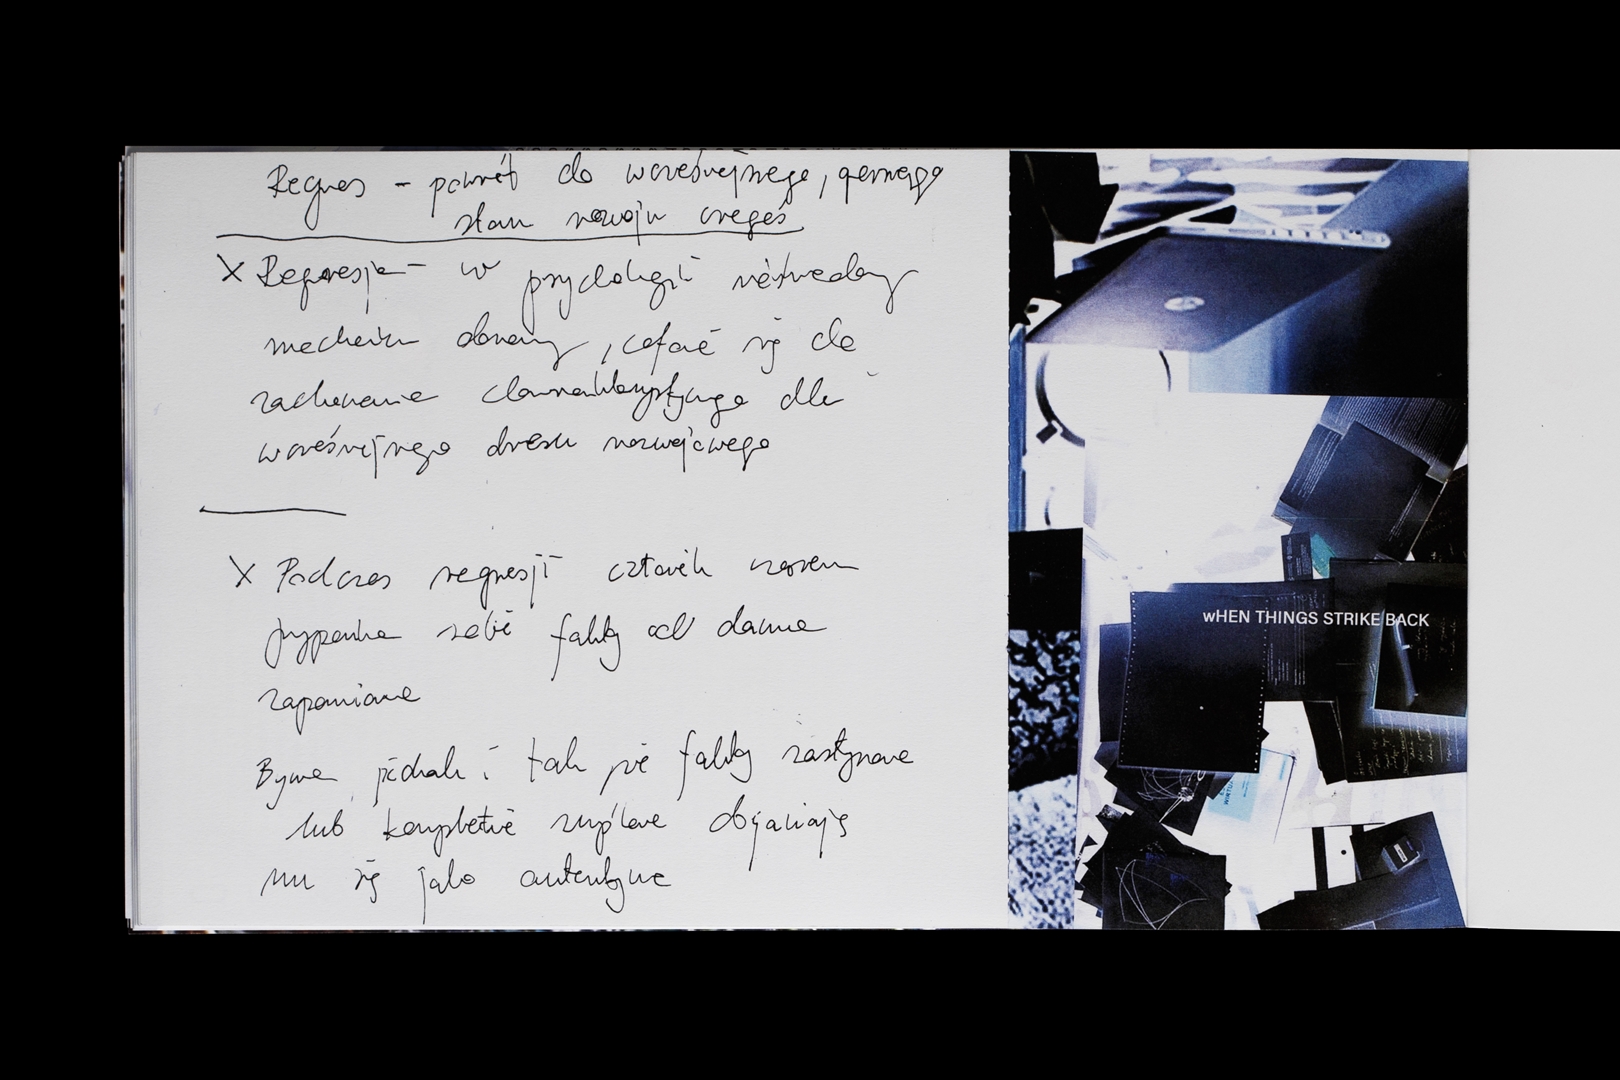 Regres – powrót do wcześniejszego, gorszego
stanu rozwoju czegoś
X Regresja – w psychologii nieświadomy
mechanizm obronny, cofanie się do
zachowania charakterystycznego dla
wcześniejszego okresu rozwojowego
X Podczas regresji człowiek czasem
przypomina sobie fakty od dawna
zapomniane
Bywa jednak i tak że fakty zasłyszane
lub kompletnie zmyślone objawiają
mu się jako autentyczne
wHEN THINGS STRIKE BACK